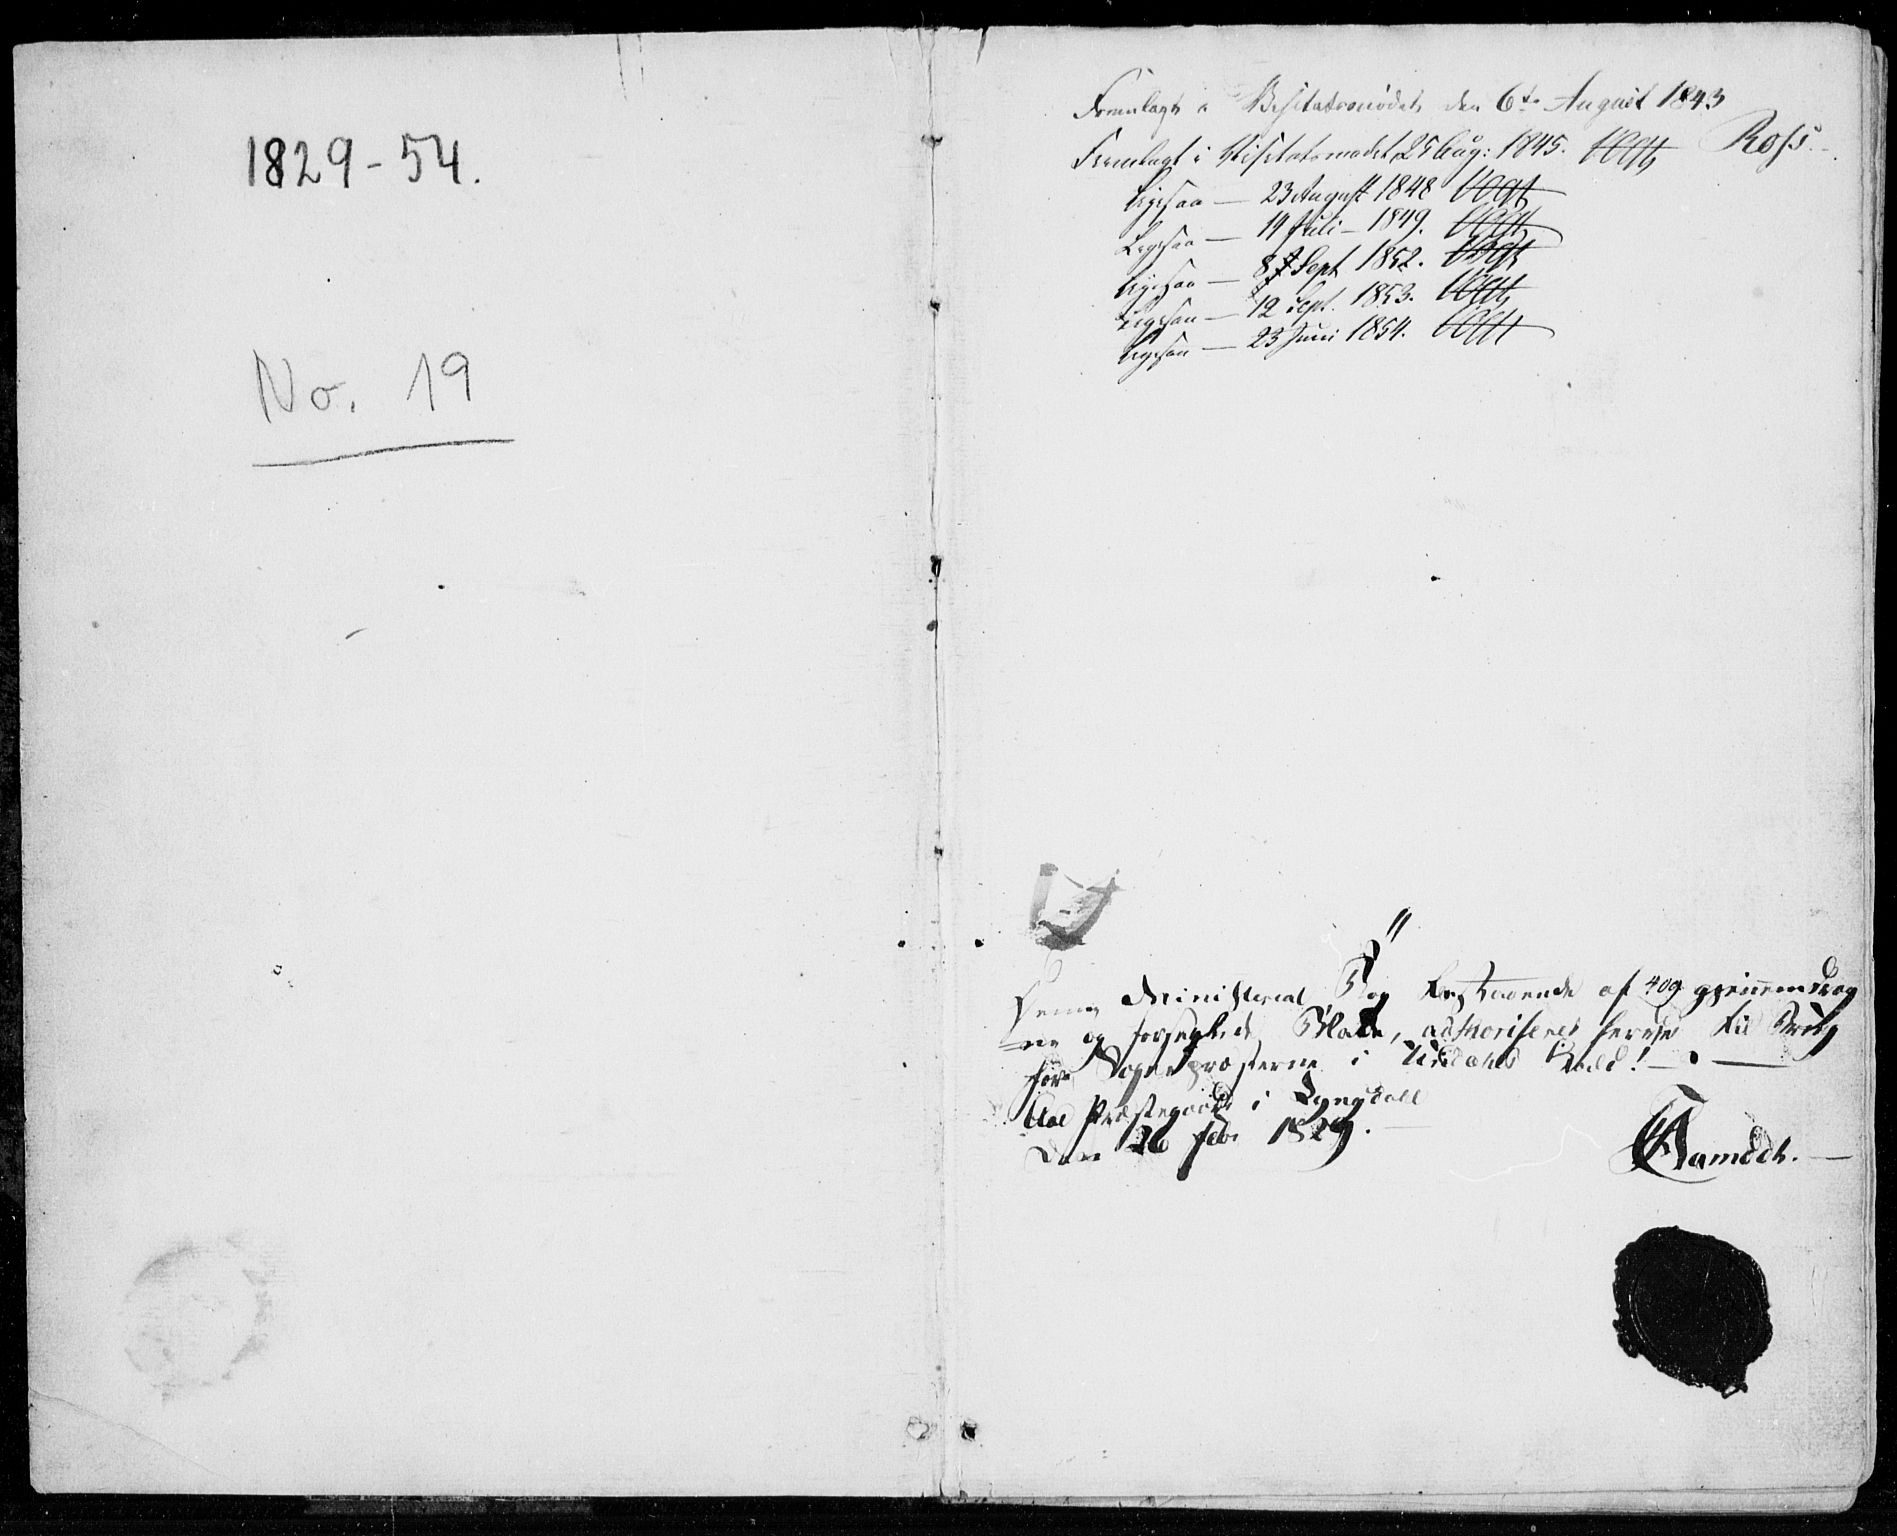 1829-54.
No. 19
Fremlagt i Visitatsmødet den 6te August 1843
Ross.
Fremlagt i Visitatsmødet, 25 Aug: 1845. Vogt
Ligesaa — 23 August 1848 Vogt
Ligesaa — 19 Juli - 1849. Vogt
Ligesaa — 8 Sept 1852. Vogt
Ligesaa — 12 Sept. 1853. Vogt
Ligesaa — 23 Juni 1854. Vogt
Denne Ministerial Bog bestaaende af 409 gjennemdrag
ne og forseglede Blade, authoriseres herved til Brug
for Sognepræsterne i Undals Kald! —
Aae Præstegaard i Lyngdall
Den 26 Feb: 1829. —